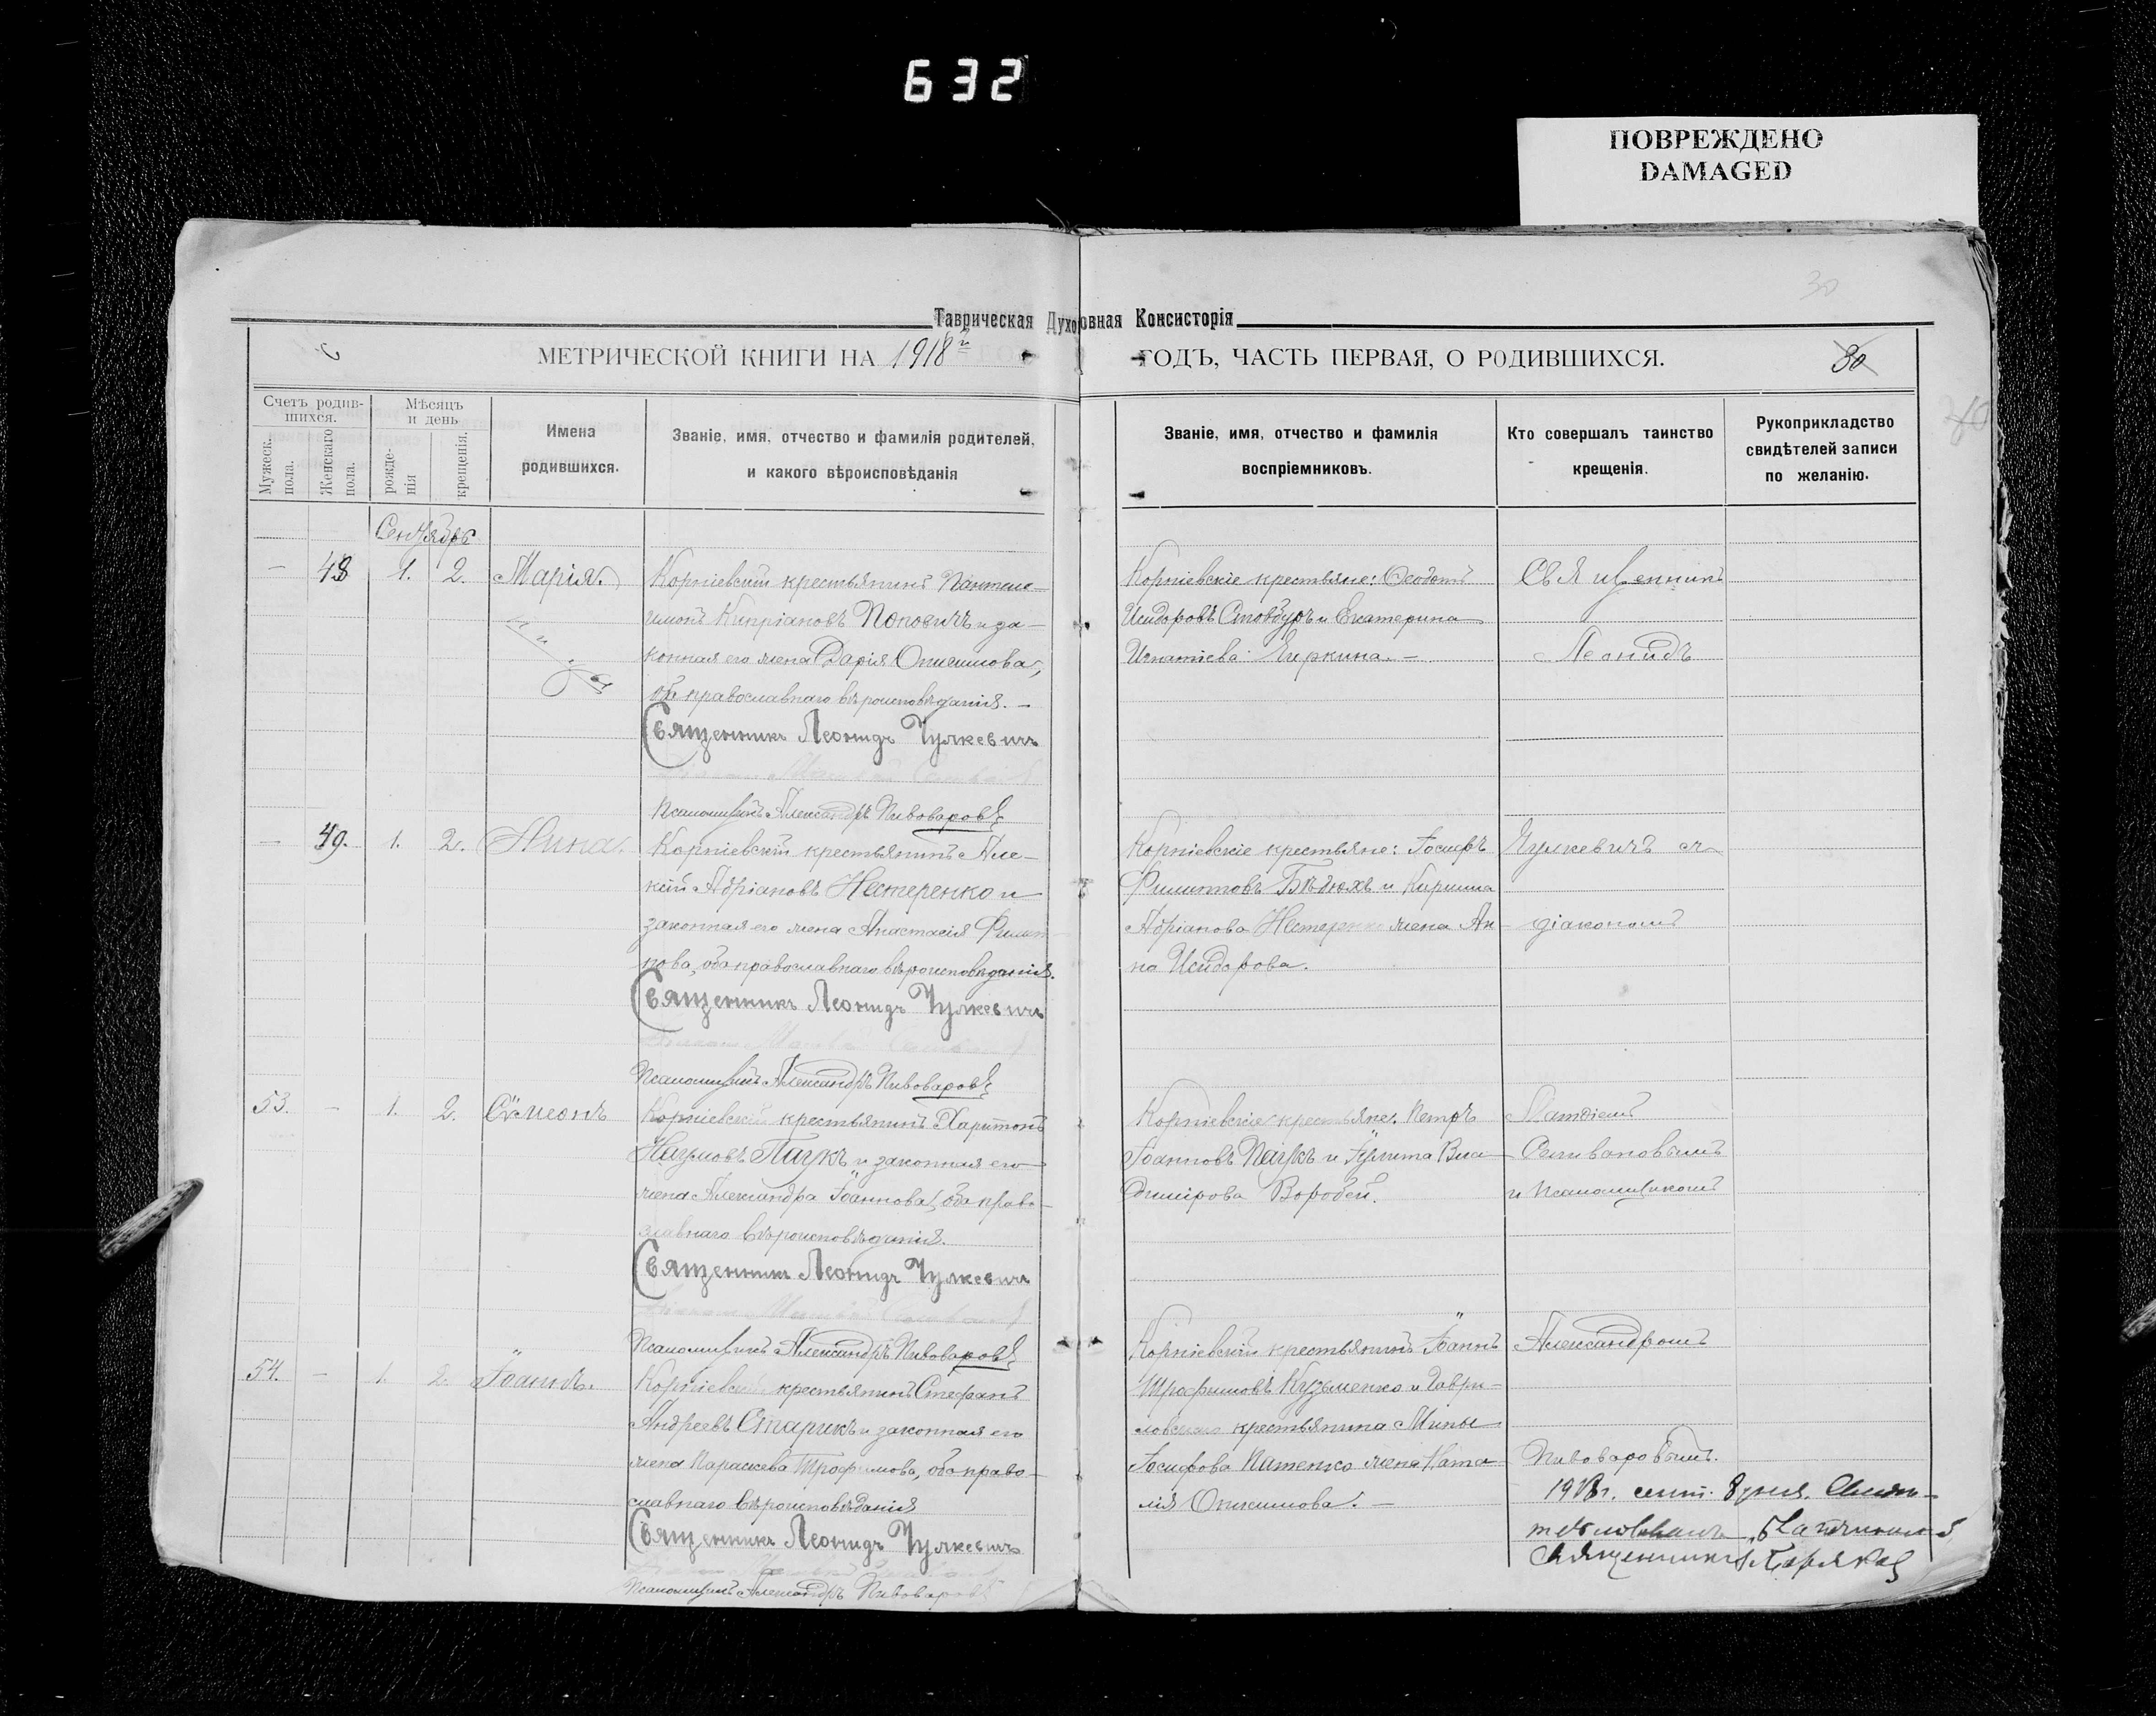 632
ПОВРЕЖДЕНО
DAMAGED
30
Таврическая Духовная Консисторія
МЕТРИЧЕСКОЙ КНИГИ НА 1918й ГОДЪ, ЧАСТЬ ПЕРВАЯ, О РОДИВШИХСЯ.
30
Счетъ родив-
шихся.
Мужеск.
пола.
Женскаго
пола.
Мѣсяцъ
и день
рожде-
нія
крещенія.
Имена
родившихся.
Званіе, имя, отчество и фамилія родителей,
и какого вѣроисповѣданія
Званіе, имя, отчество и фамилія
воспріемниковъ.
Кто совершалъ таинство
крещенія.
Рукоприкладство
свидѣтелей записи
по желанію.
Сентябрь
— 48 1. 2. Марія.
Корніевскій крестьянинъ Пантеле-
имонъ Кипріановъ Поповичъ и за-
конная его жена Дарія Онисимова,
оба православнаго вѣроисповѣданія. —
Священникъ Леонидъ Чулкевичъ
Псаломщикъ Александръ Пивоваровъ
Корніевскіе крестьяне: Ѳеодотъ
Исидоровъ Стовбуръ и Екатерина
Игнатіева —
Священникъ
Леонидъ
— 49. 1. 2. Нина.
Корніевскій крестьянинъ Але-
ксій Адріановъ Нестеренко и
законная его жена Анастасія Филип-
пова, оба православнаго вѣроисповѣданія.
Священникъ Леонидъ Чулкевичъ
Псаломщикъ Александръ Пивоваровъ
Корніевскіе крестьяне: Іосифъ
Филипповъ и Кирилла
Адріанова Нестеренко жена Ан-
на Исидорова.
Чулкевичъ съ
діакономъ
53. — 1. 2. Сѵмеонъ
Корніевскій крестьянинъ Харитонъ
Наумовъ Паукъ и законная его
жена Александра Іоаннова, оба право-
славнаго вѣроисповѣданія.
Священникъ Леонидъ Чулкевичъ
Псаломщикъ Александръ Пивоваровъ
Корніевскіе крестьяне: Петръ
Іоанновъ Паукъ и Іулита Вла-
димірова Воробей.
Матѳіемъ
Селивановымъ
и псаломщикомъ
54. — 1. 2. Іоаннъ.
Корніевскій крестьянинъ Стефанъ
Андреевъ Старикъ и законная его
жена Параскева Трофимова, оба право-
славнаго вѣроисповѣданія
Священникъ Леонидъ Чулкевичъ
Псаломщикъ Александръ Пивоваровъ
Корніевскій крестьянинъ Іоаннъ
Трофимовъ Кузьменко и Гаври-
ловскаго крестьянина Мины
Іосифова жена Ната-
лія Онисимова. —
Александромъ
Пивоваровымъ.
1918г. сент. 8 дня.
священникъ